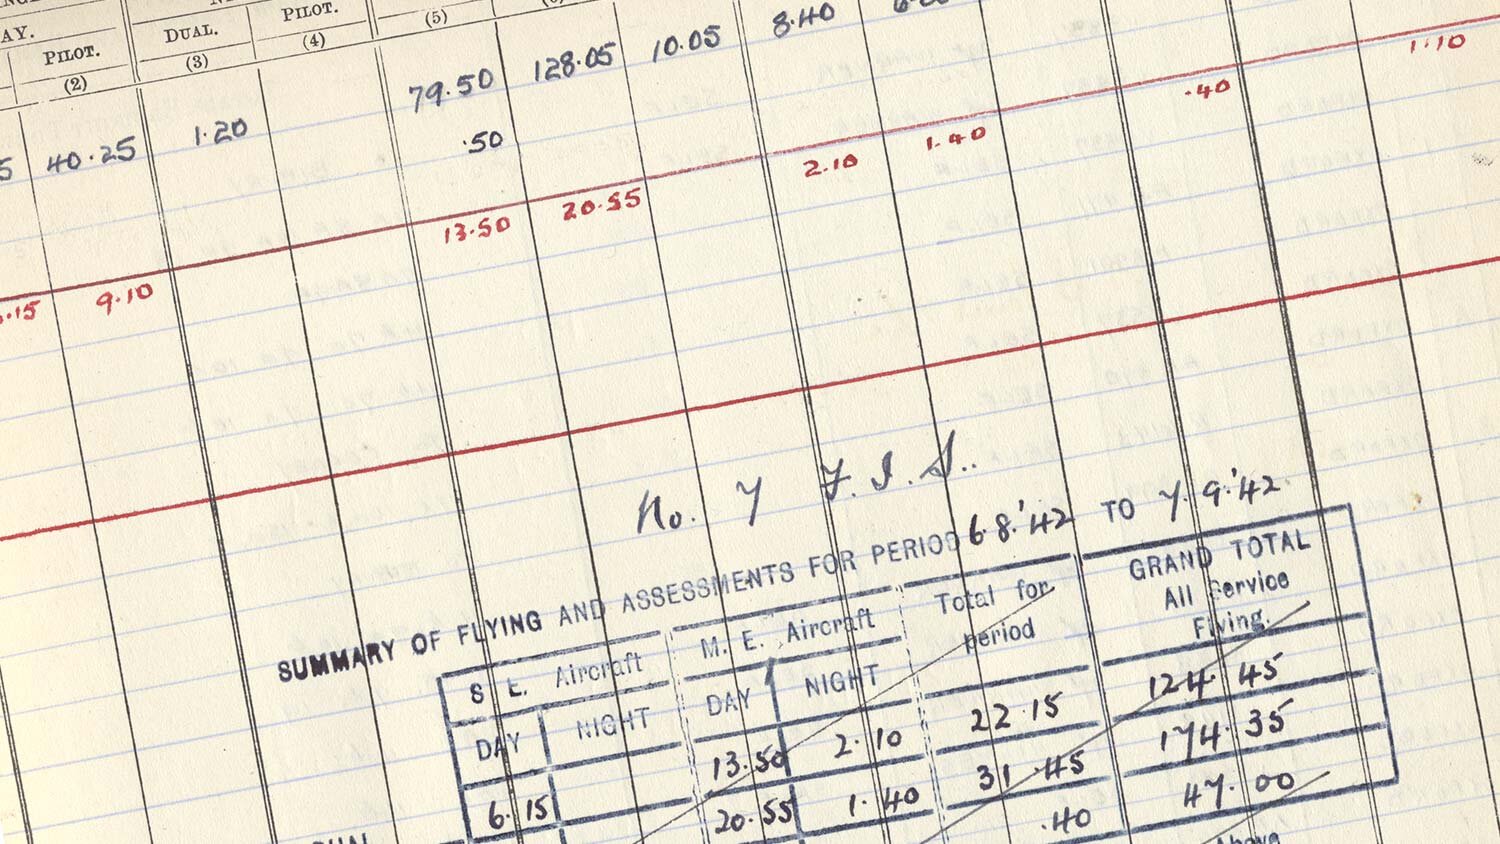 AY.
DUAL.
PILOT.
PILOT.
(2)
(3)
(4)
(5)
79.50
128.05
10.05
8.40
40.25
1.20
.50
13.50
20.55
2.10
1.40
.40
1.10
.15
9.10
No. 7 F.I.S..
SUMMARY OF FLYING AND ASSESSMENTS FOR PERIOD 6.8.'42 TO 7.9.'42.
S. E. Aircraft
M. E. Aircraft
Total for period
GRAND TOTAL
All Service
Flying.
DAY
NIGHT
DAY
NIGHT
13.50
2.10
22.15
124.45
6.15
20.55
1.40
31.45
174.35
.40
47.00
Above